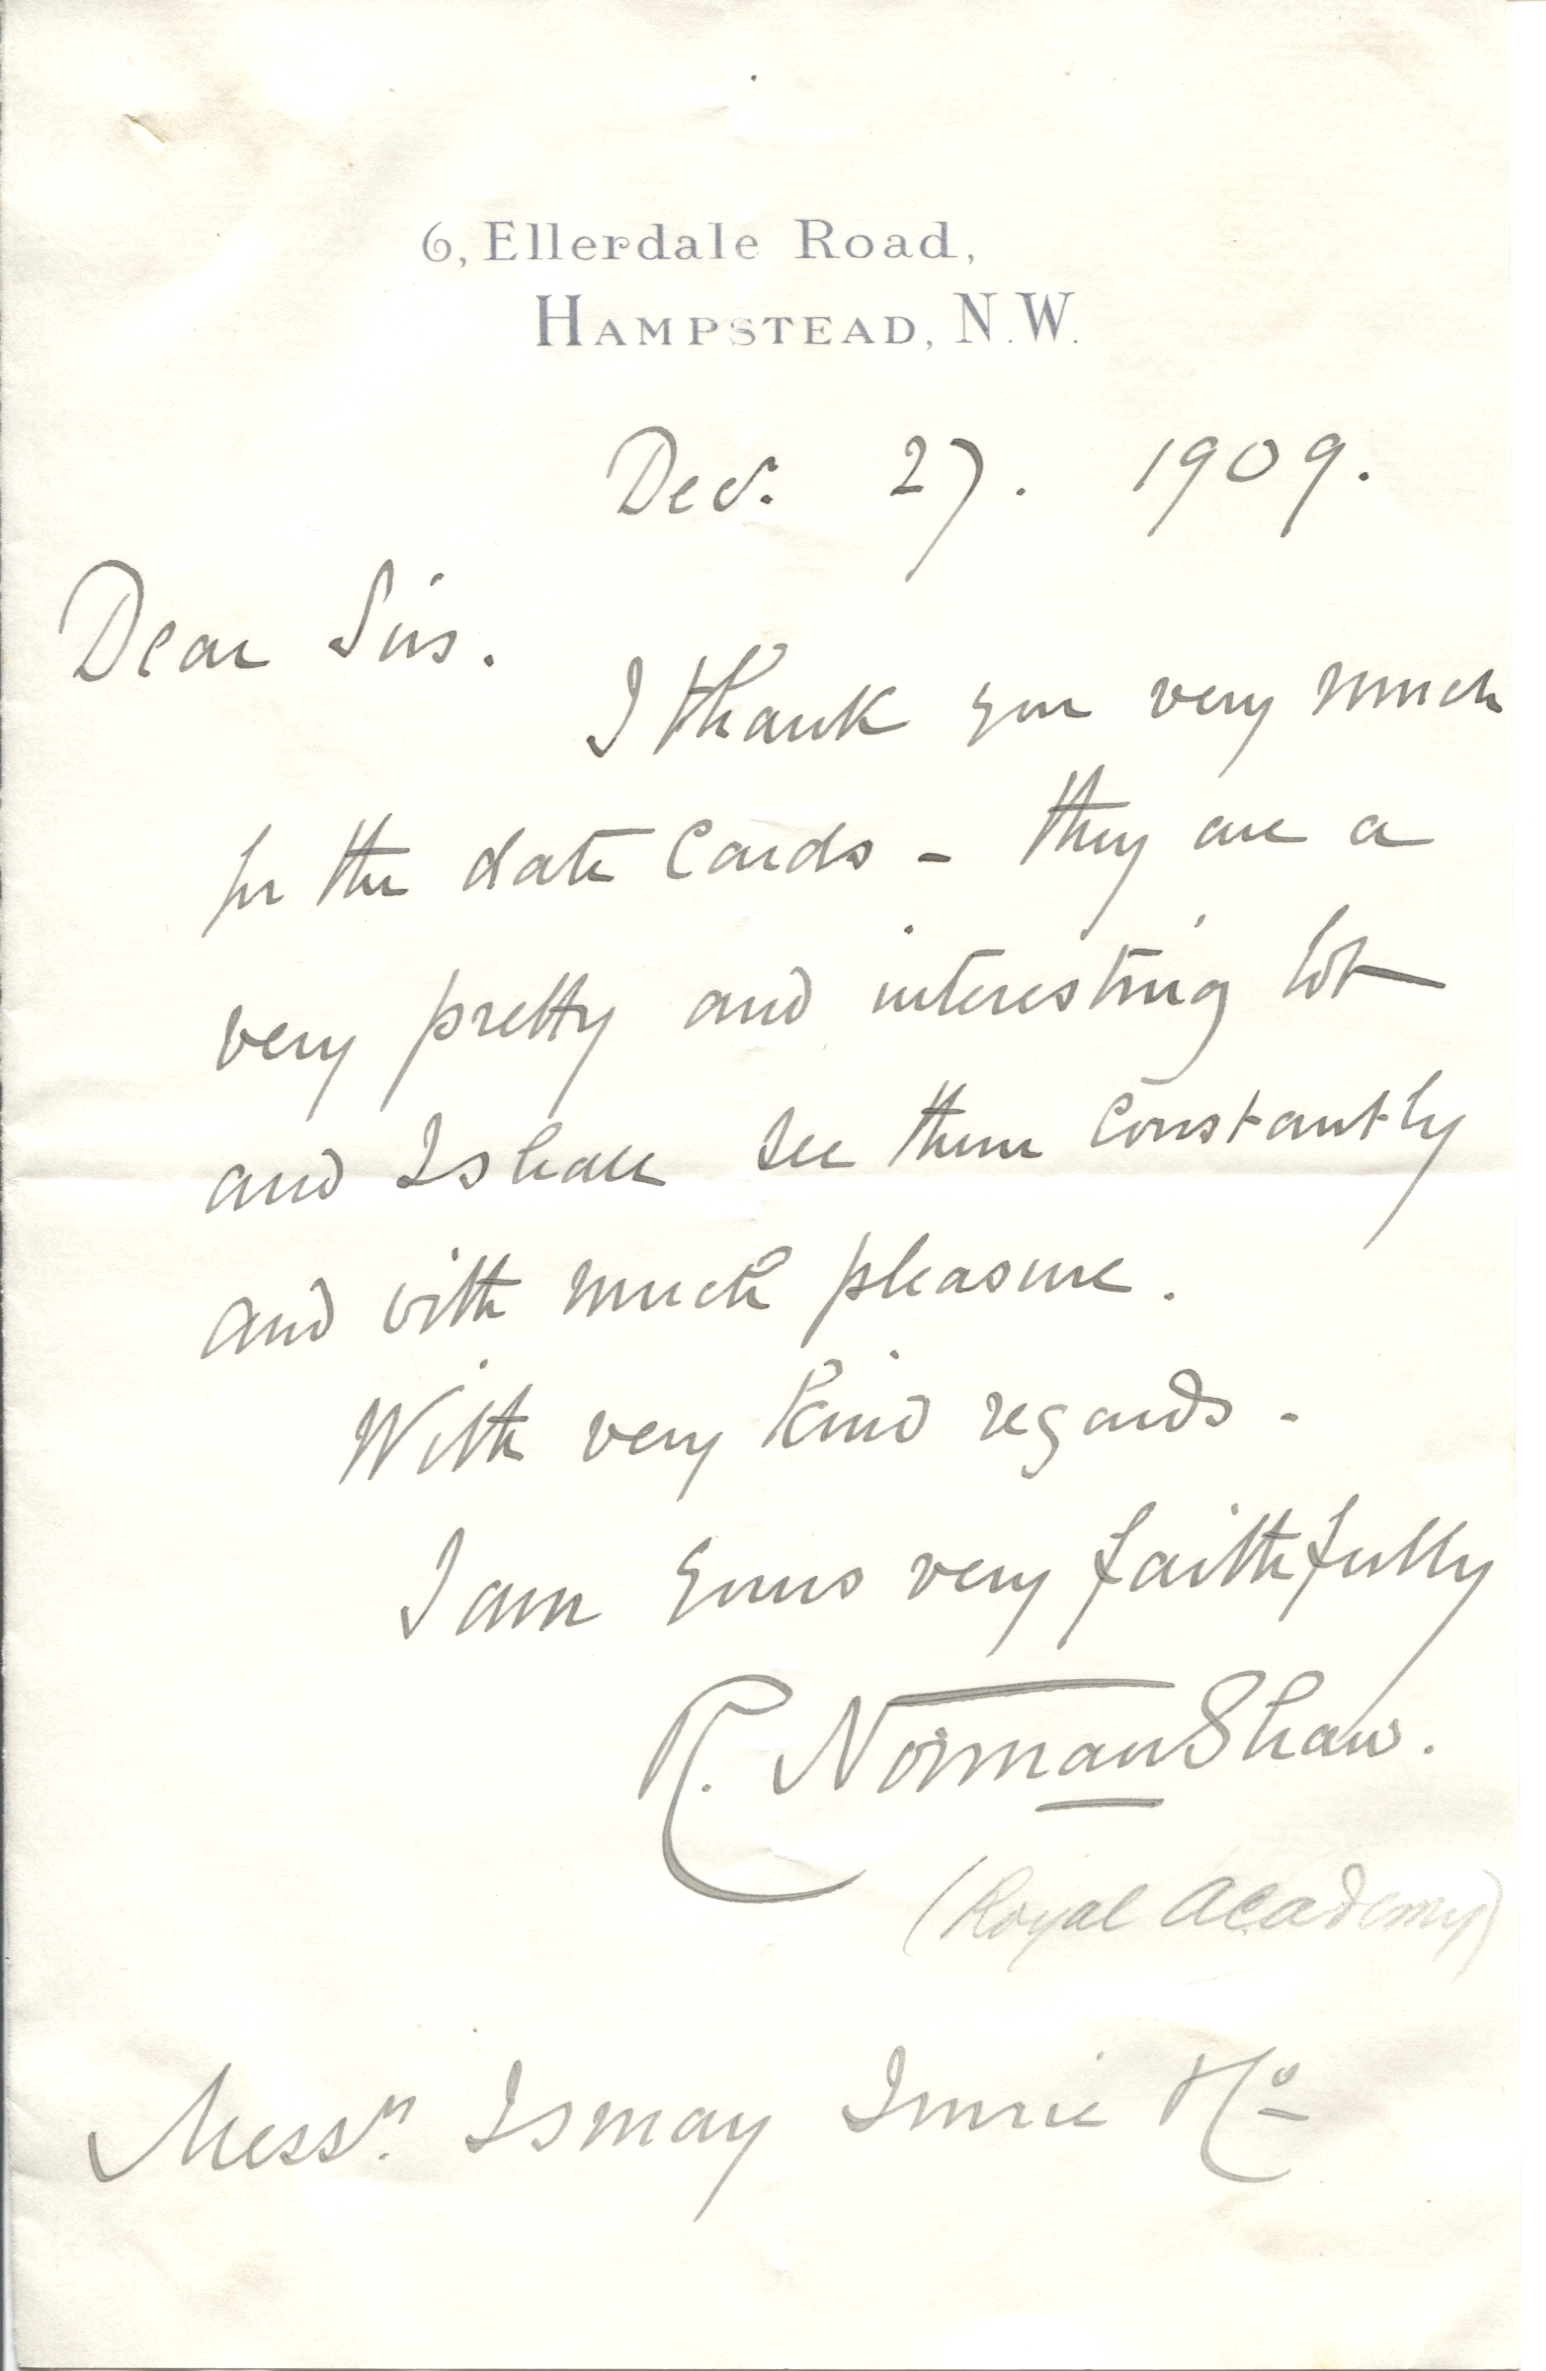 6, Ellerdale Road,
HAMPSTEAD, N.W.
Decr. 27. 1909.
Dear Sirs.
I thank you very much
for the date cards - they are a
very pretty and interesting lot
and I shall see them constantly
and with much pleasure.
With very kind regards -
I am yours very faithfully
R. Norman Shaw.
(Royal Academy)
Messrs. Ismay Imrie & Co